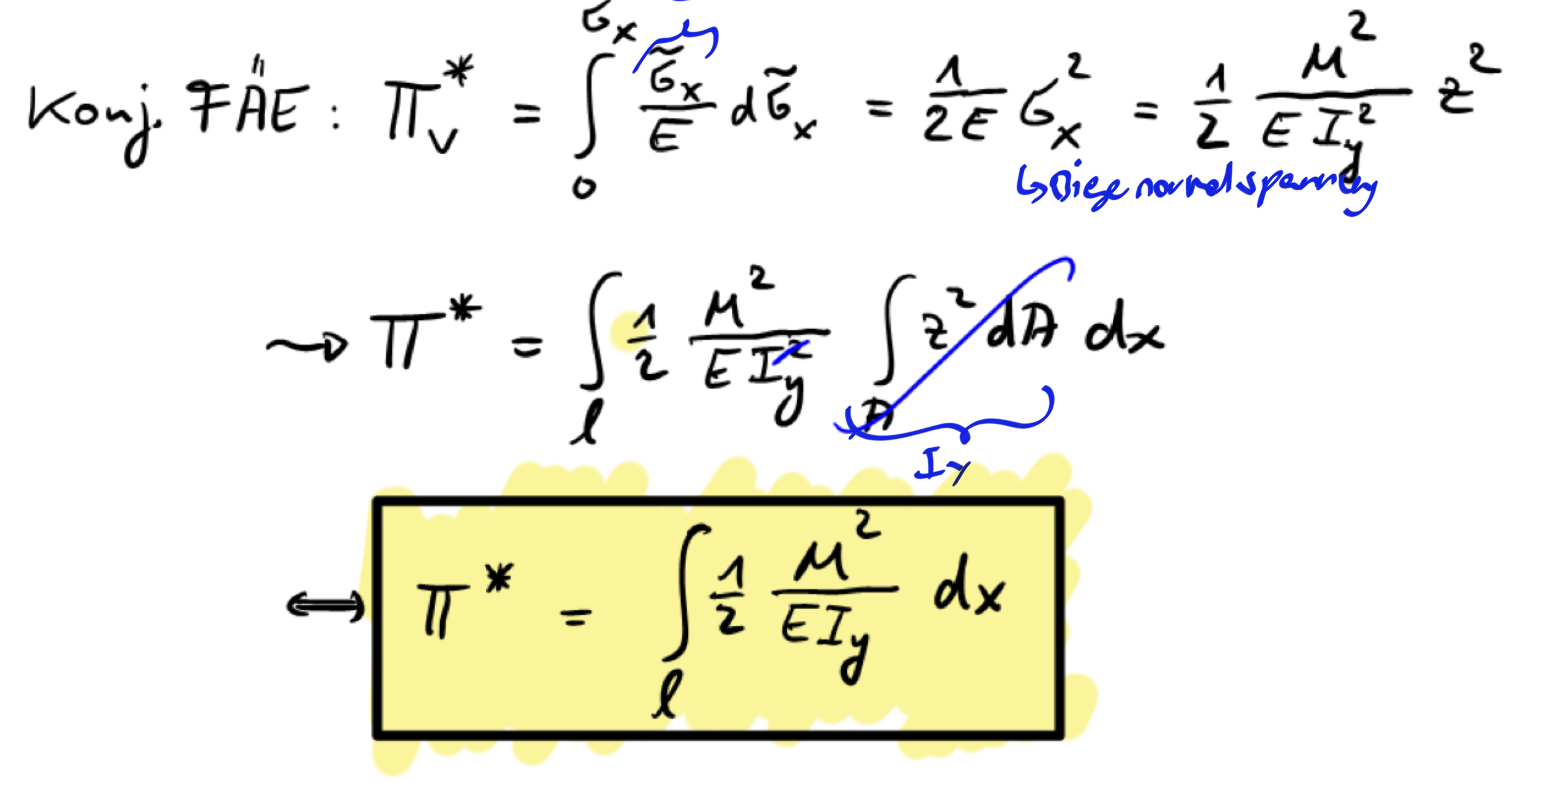 Konj. FÄE : Π_V^* = ∫_0^{σ_x} \frac{\tilde{σ}_x}{E} d\tilde{σ}_x = \frac{1}{2E} σ_x^2 = \frac{1}{2} \frac{M^2}{E I_y^2} z^2
↳ Biegenormalspannung
⤳ Π^* = ∫_l \frac{1}{2} \frac{M^2}{E I_y^2} ∫_A z^2 dA dx
I_y
⟺ Π^* = ∫_l \frac{1}{2} \frac{M^2}{E I_y} dx